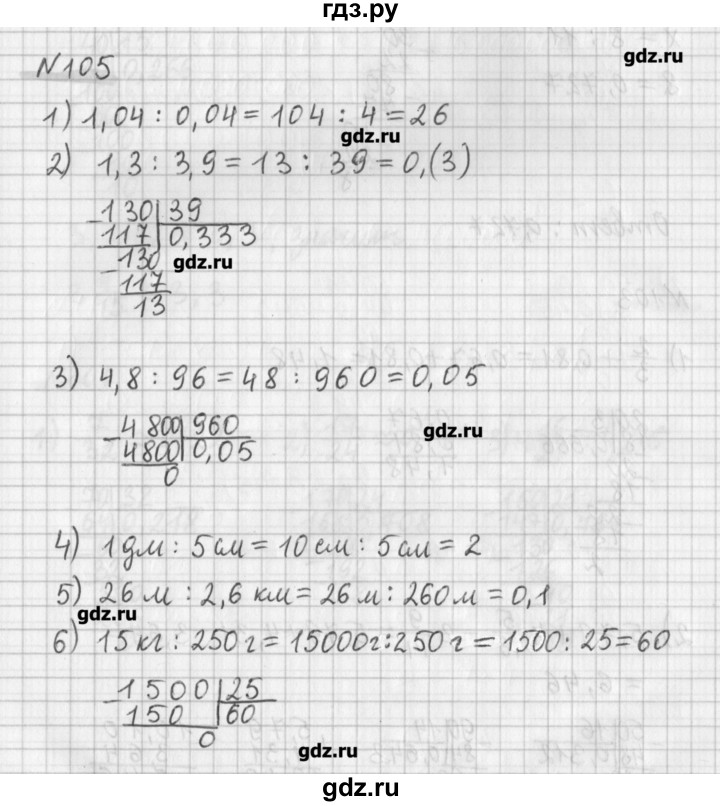 гдз.ру
gdz.ru
N105
1) 1,04 : 0,04 = 104 : 4 = 26
gdz.ru
2) 1,3 : 3,9 = 13 : 39 = 0,(3)
130 39
117 0,333
130 gdz.ru
117
13
3) 4,8 : 96 = 48 : 960 = 0,05
4800 960
gdz.ru
4800 0,05
0
4) 1дм : 5см = 10см : 5см = 2
5) 26м : 2,6 км = 26м : 260м = 0,1
gdz.ru
6) 15кг : 250г = 15000г : 250г = 1500 : 25 = 60
1500 25
150 60
0
gdz.ru
gdz.ru